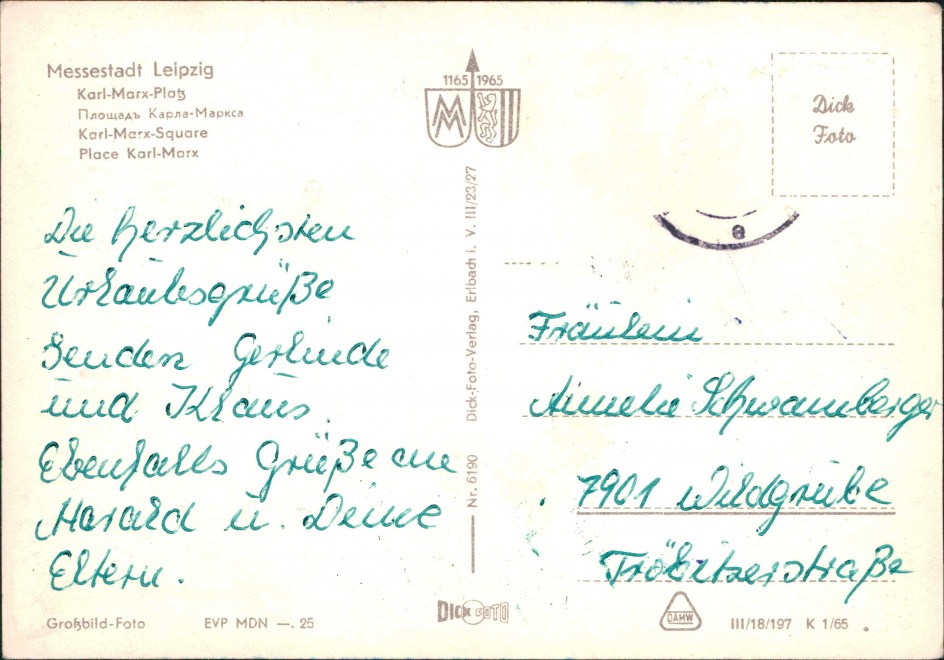 Messestadt Leipzig
Karl-Marx-Platz
Площадъ Карла-Маркса
Karl-Marx-Square
Place Karl-Marx
1165 1965
MM
Dick
Foto
e
Die herzlichsten
Urlaubsgrüße
senden Gerlinde
und Klaus.
Ebenfalls Grüße an
Harald u. Deine
Eltern.
Nr. 6190 Dick-Foto-Verlag, Erlbach i. V. III/23/27
Fräulein
Annelie Schwamberger
7901 Wildgrube
Tröbitzerstraße
Großbild-Foto
EVP MDN —. 25
DICK FOTO
DAMW
III/18/197 K 1/65